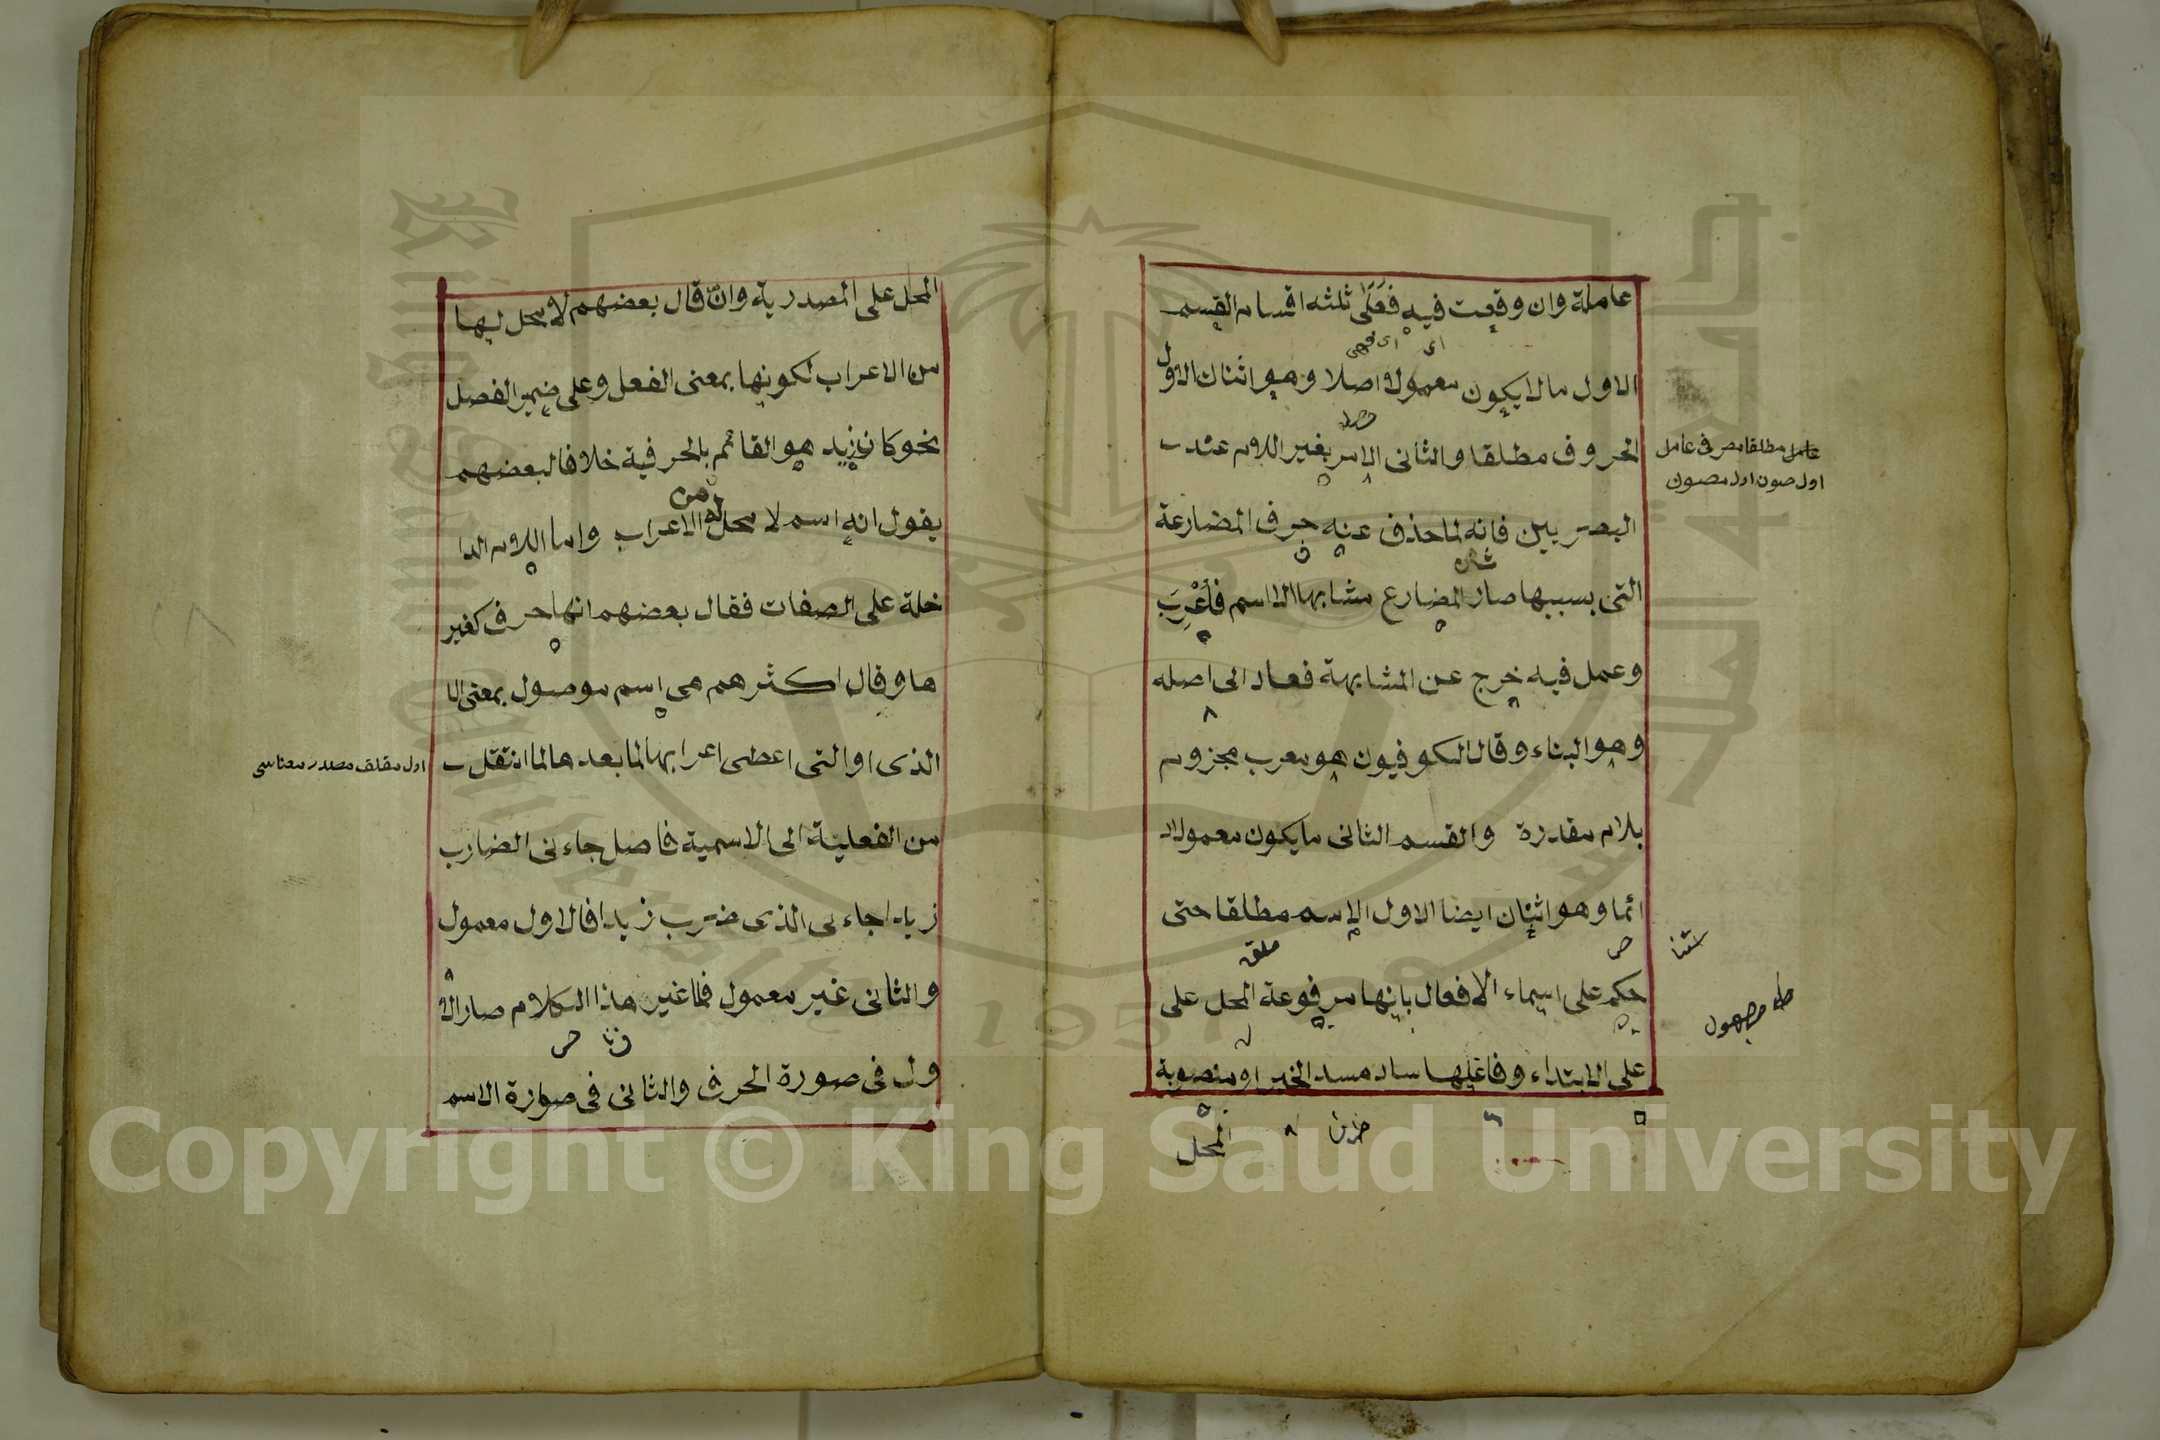 عاملة وان وقعت فيه فَعَلَى ثلثه اقسام القسم
الاول مالايكون معمولا اصلا وهو اثنان الاول
الحروف مطلقا والثانى الامر بغير اللام عند
البصريين فانه لما حذف عنه حرف المضارعة
التى بسببها صار المضارع مشابها الاسم فأُعْرِبَ
وعمل فيه خرج عن المشابهة فعاد الى اصله
وهو البناء وقال الكوفيون هو معرب مجزوم
بلام مقدرة والقسم الثانى مايكون معمولاد
ائما وهو اثنان ايضا الاول الاسم مطلقا حتى
حكم على اسماء الافعال بانها مرفوعة المحل على
على الابتداء وفاعلها ساد مسد الخبر او منصوبة
المحل
المحل على المصدرية وان قال بعضهم لا محل لها
من الاعراب لكونها بمعنى الفعل وعلى ضمير الفصل
نحو كان زيد هو القائم بالحرفية خلافا لبعضهم
يقول انه اسم لا محل له من الاعراب واما اللام الدا
خلة على الصفات فقال بعضهم انها حرف كغير
ها وقال اكثرهم هى اسم موصول بمعنى ال
الذى او التى اعطى اعرابها لما بعدها لما انتقل
من الفعلية الى الاسمية فاصل جاءنى الضارب
زيدا جاءنى الذى ضرب زيدا فالاول معمول
والثانى غير معمول فلما غير هذا الكلام صار الا
ول فى صورة الحرف والثانى فى صورة الاسم
Copyright © King Saud University
1957